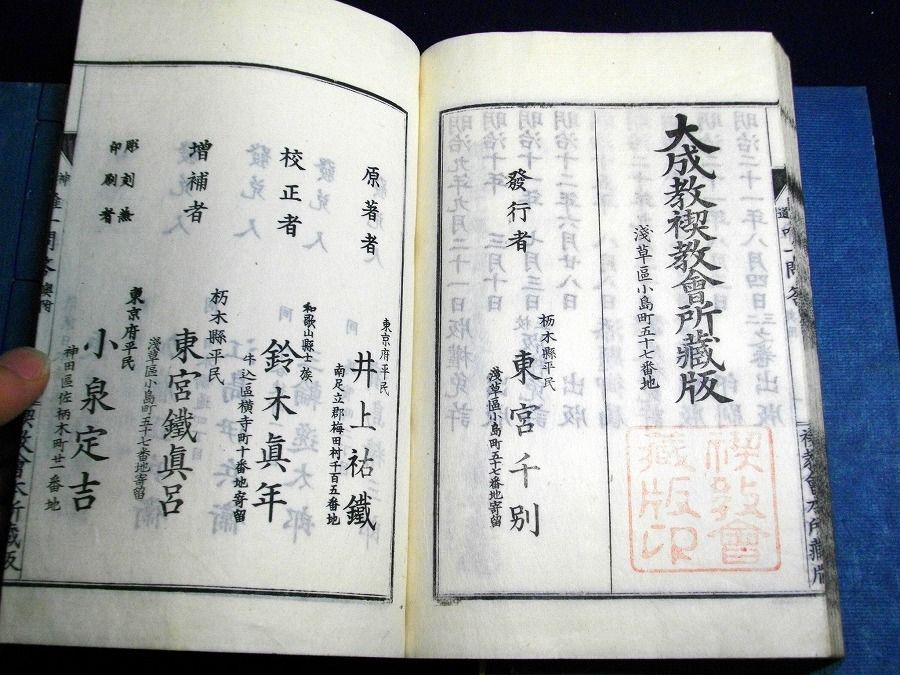 大成教禊教會所藏版
淺草區小島町五十七番地
禊教會藏版印
發行者
栃木縣平民
東宮千別
淺草區小島町五十七番地寄留
原著者
東京府平民
井上祐鐵
南足立郡梅田村千百五番地
校正者
和歌山縣士族
鈴木眞年
牛込區横寺町十番地寄留
增補者
栃木縣平民
東宮鐵眞呂
淺草區小島町五十七番地寄留
彫刻兼
印刷者
東京府平民
小泉定吉
神田區佐柄木町廿一番地